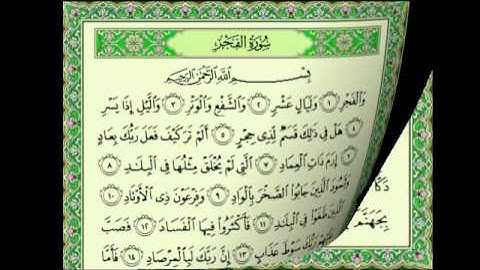 سُورَةُ الفَجْرِ
بِسْمِ اللَّهِ الرَّحْمَٰنِ الرَّحِيمِ
وَالْفَجْرِ ١ وَلَيَالٍ عَشْرٍ ٢ وَالشَّفْعِ وَالْوَتْرِ ٣ وَاللَّيْلِ إِذَا يَسْرِ
٤ هَلْ فِي ذَٰلِكَ قَسَمٌ لِّذِي حِجْرٍ ٥ أَلَمْ تَرَ كَيْفَ فَعَلَ رَبُّكَ بِعَادٍ
٦ إِرَمَ ذَاتِ الْعِمَادِ ٧ الَّتِي لَمْ يُخْلَقْ مِثْلُهَا فِي الْبِلَادِ ٨
وَثَمُودَ الَّذِينَ جَابُوا الصَّخْرَ بِالْوَادِ ٩ وَفِرْعَوْنَ ذِي الْأَوْتَادِ ١٠
الَّذِينَ طَغَوْا فِي الْبِلَادِ ١١ فَأَكْثَرُوا فِيهَا الْفَسَادَ ١٢ فَصَبَّ
عَلَيْهِمْ رَبُّكَ سَوْطَ عَذَابٍ ١٣ إِنَّ رَبَّكَ لَبِالْمِرْصَادِ ١٤ فَأَمَّا
بِجَهَنَّمَ